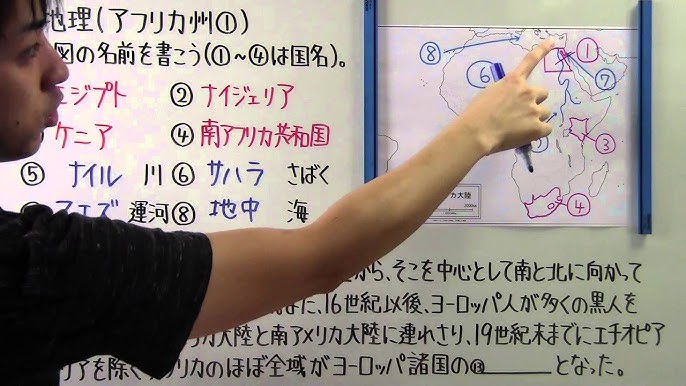 地理(アフリカ州①)
図の名前を書こう(①~④は国名)。
エジプト ② ナイジェリア
ケニア ④ 南アフリカ共和国
⑤ ナイル 川 ⑥ サハラ さばく
運河 ⑧ 地中 海
⑧ ① ⑥ ⑦ ③ ④
カ大陸
から、そこを中心として南と北に向かって
また、16世紀以後、ヨーロッパ人が多くの黒人を
カ大陸と南アメリカ大陸に連れさり、19世紀末までにエチオピア
リアを除くアフリカのほぼ全域がヨーロッパ諸国の⑬ となった。